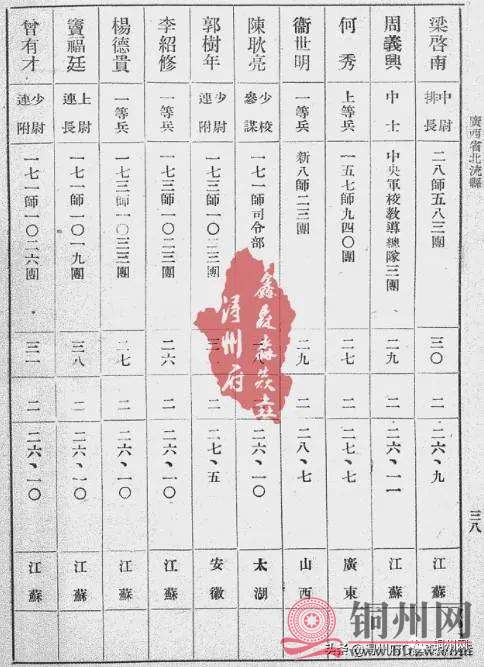 廣西省北流縣
梁啓南 中尉排長 二八師五八三團 三〇 二 二六、九 江蘇
周義興 中士 中央軍校教導總隊三團 二九 二 二六、一一 江蘇
何秀 上等兵 一五七師九四〇團 二七 二 二七、七 廣東
衞世明 一等兵 新八師二三團 二九 二 二八、七 山西
陳耿亮 少校參謀 一七一師司令部 二 二六、一〇 太湖
郭樹年 少尉連附 一七三師一〇三團 二 二七、五 安徽
李紹修 一等兵 一七三師一〇二三團 二六 二 二六、一〇 江蘇
楊德貴 一等兵 一七三師一〇三三團 二七 二 二六、一〇 江蘇
竇福廷 上尉連長 一七一師一〇一九團 三八 二 二六、一〇 江蘇
曾有才 少尉連附 一七一師一〇二六團 三一 二 二六、一〇 江蘇
三八
潯州府
铜州网
头条
www.btrzw.com